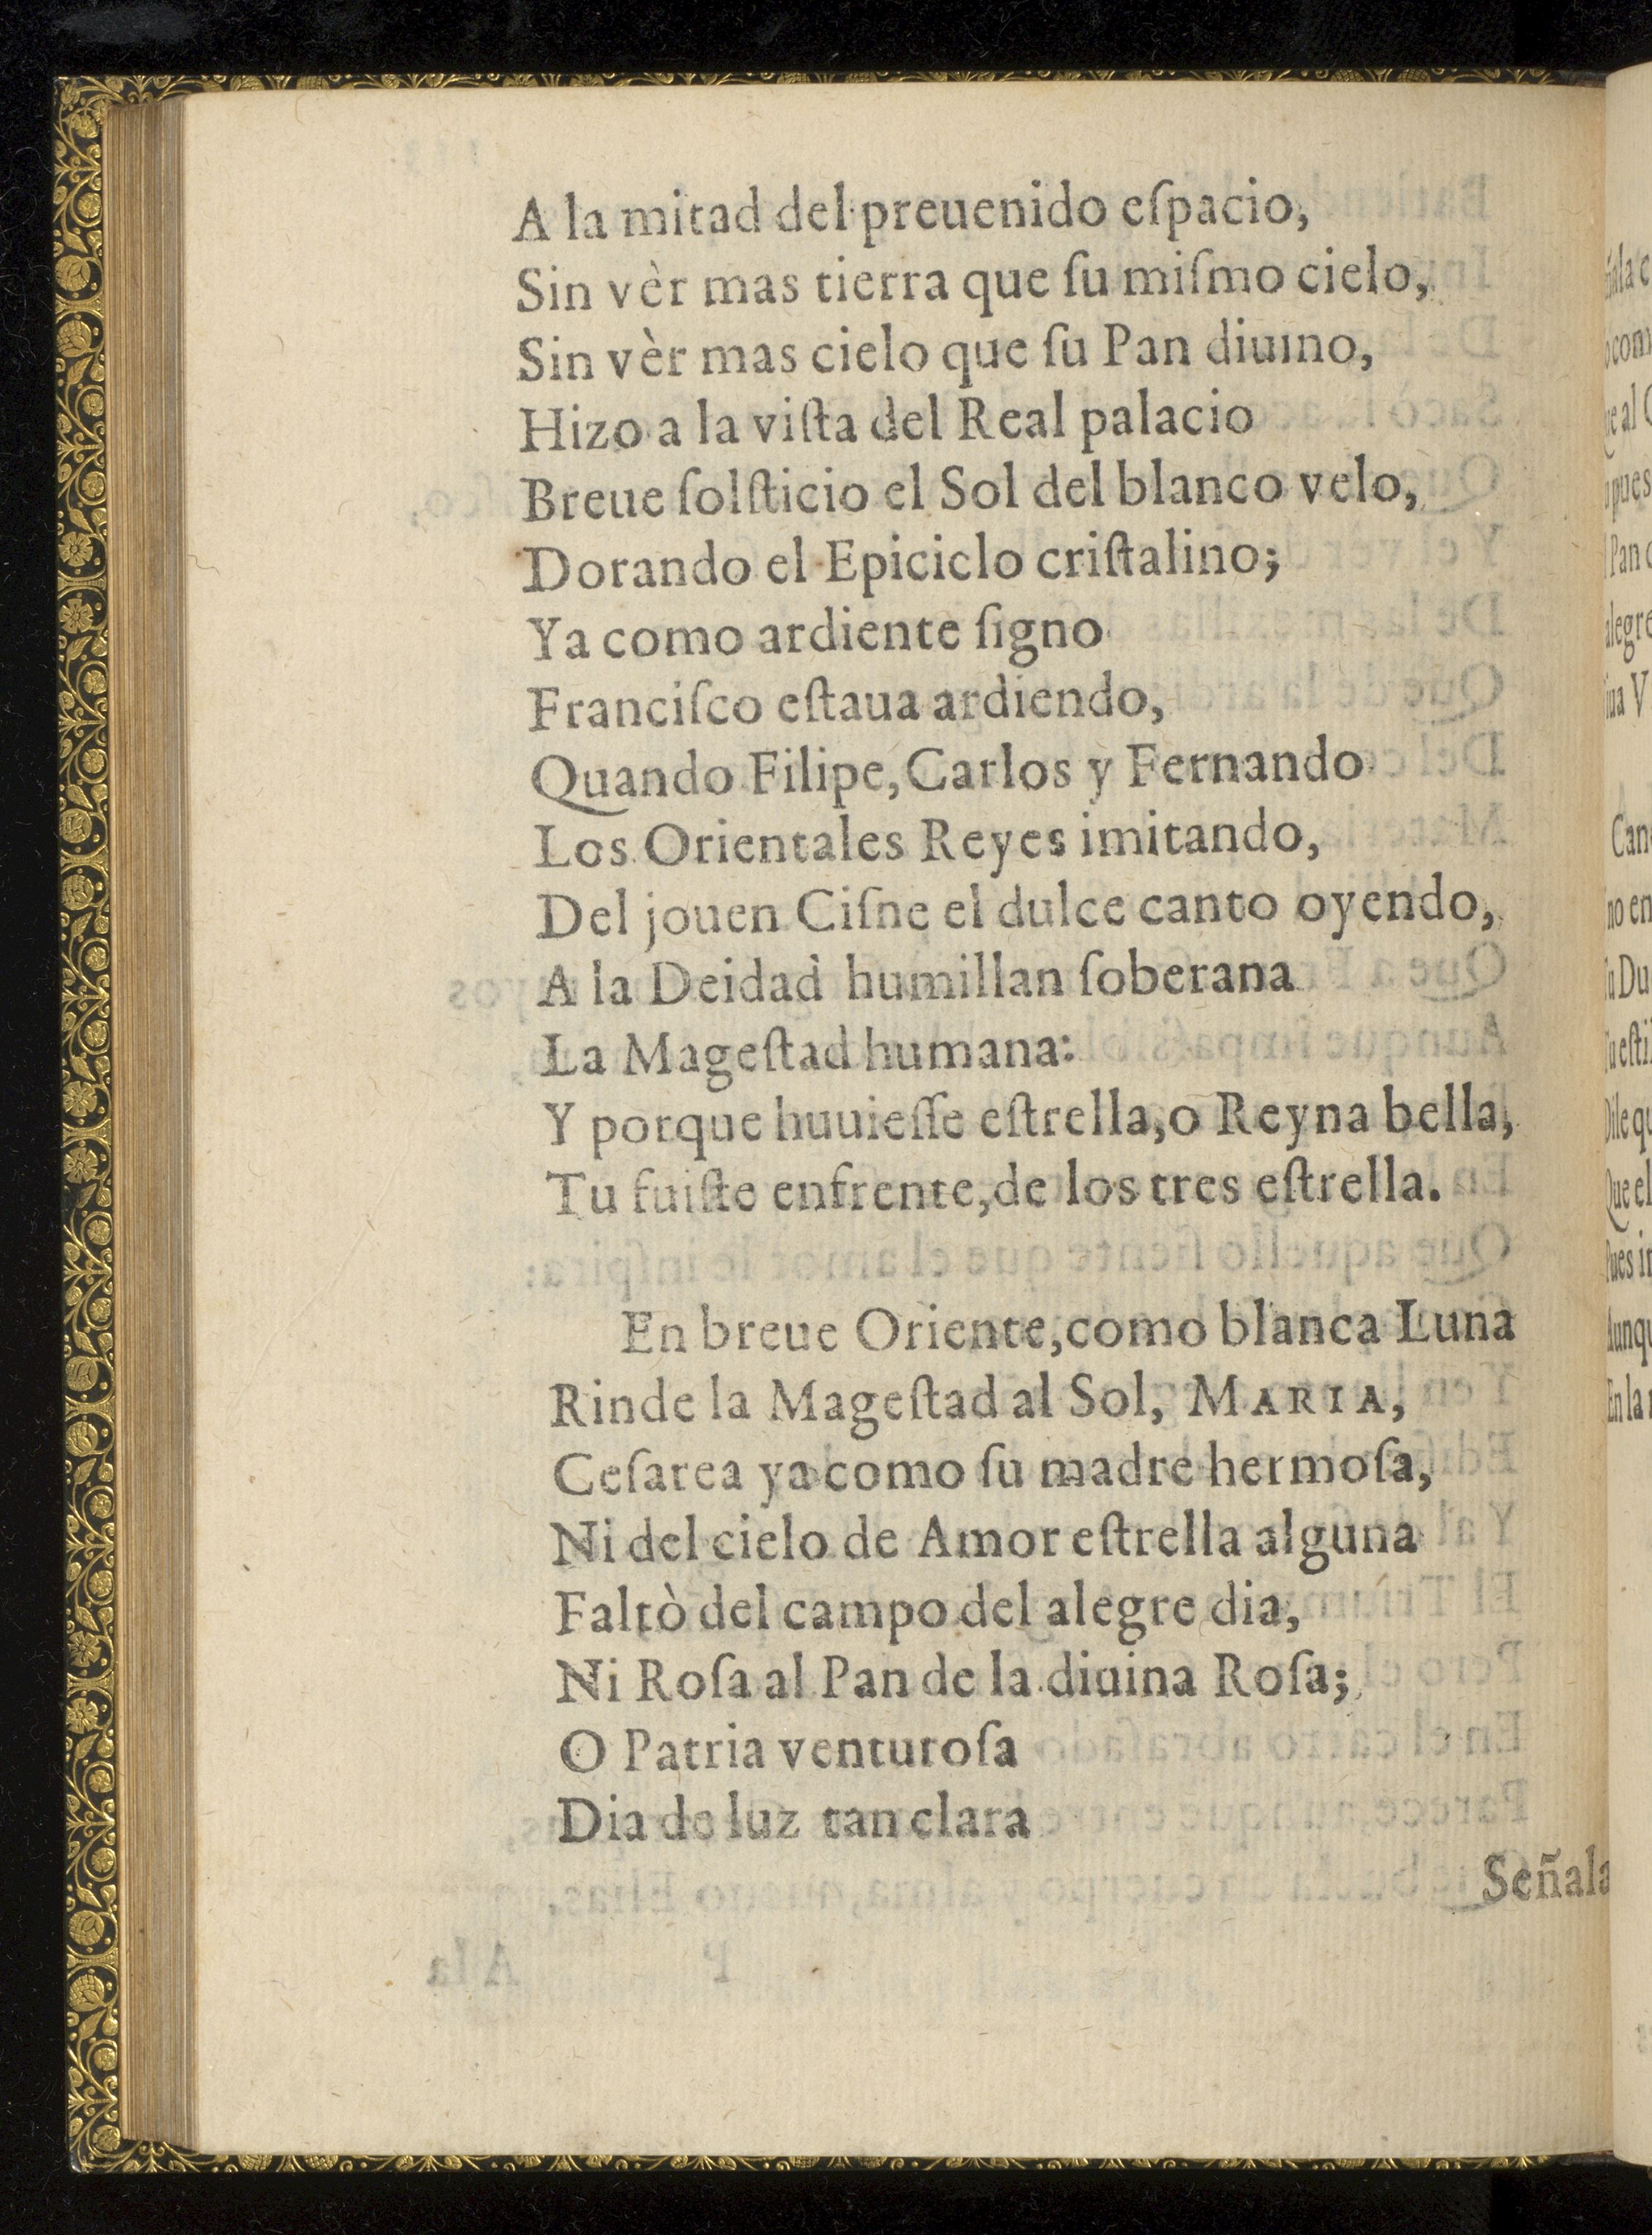 A la mitad del preuenido eſpacio,
Sin vèr mas tierra que ſu miſmo cielo,
Sin vèr mas cielo que ſu Pan diuino,
Hizo a la viſta del Real palacio
Breue ſolſticio el Sol del blanco velo,
Dorando el Epiciclo criſtalino;
Ya como ardiente ſigno
Franciſco eſtaua ardiendo,
Quando Filipe, Carlos y Fernando
Los Orientales Reyes imitando,
Del jouen Ciſne el dulce canto oyendo,
A la Deidad humillan ſoberana
La Mageſtad humana:
Y porque huuieſſe eſtrella, o Reyna bella,
Tu fuiſte enfrente, de los tres eſtrella.
En breue Oriente, como blanca Luna
Rinde la Mageſtad al Sol, MARIA,
Ceſarea ya como ſu madre hermoſa,
Ni del cielo de Amor eſtrella alguna
Faltò del campo del alegre dia,
Ni Roſa al Pan de la diuina Roſa;
O Patria venturoſa
Dia de luz tan clara
Señala